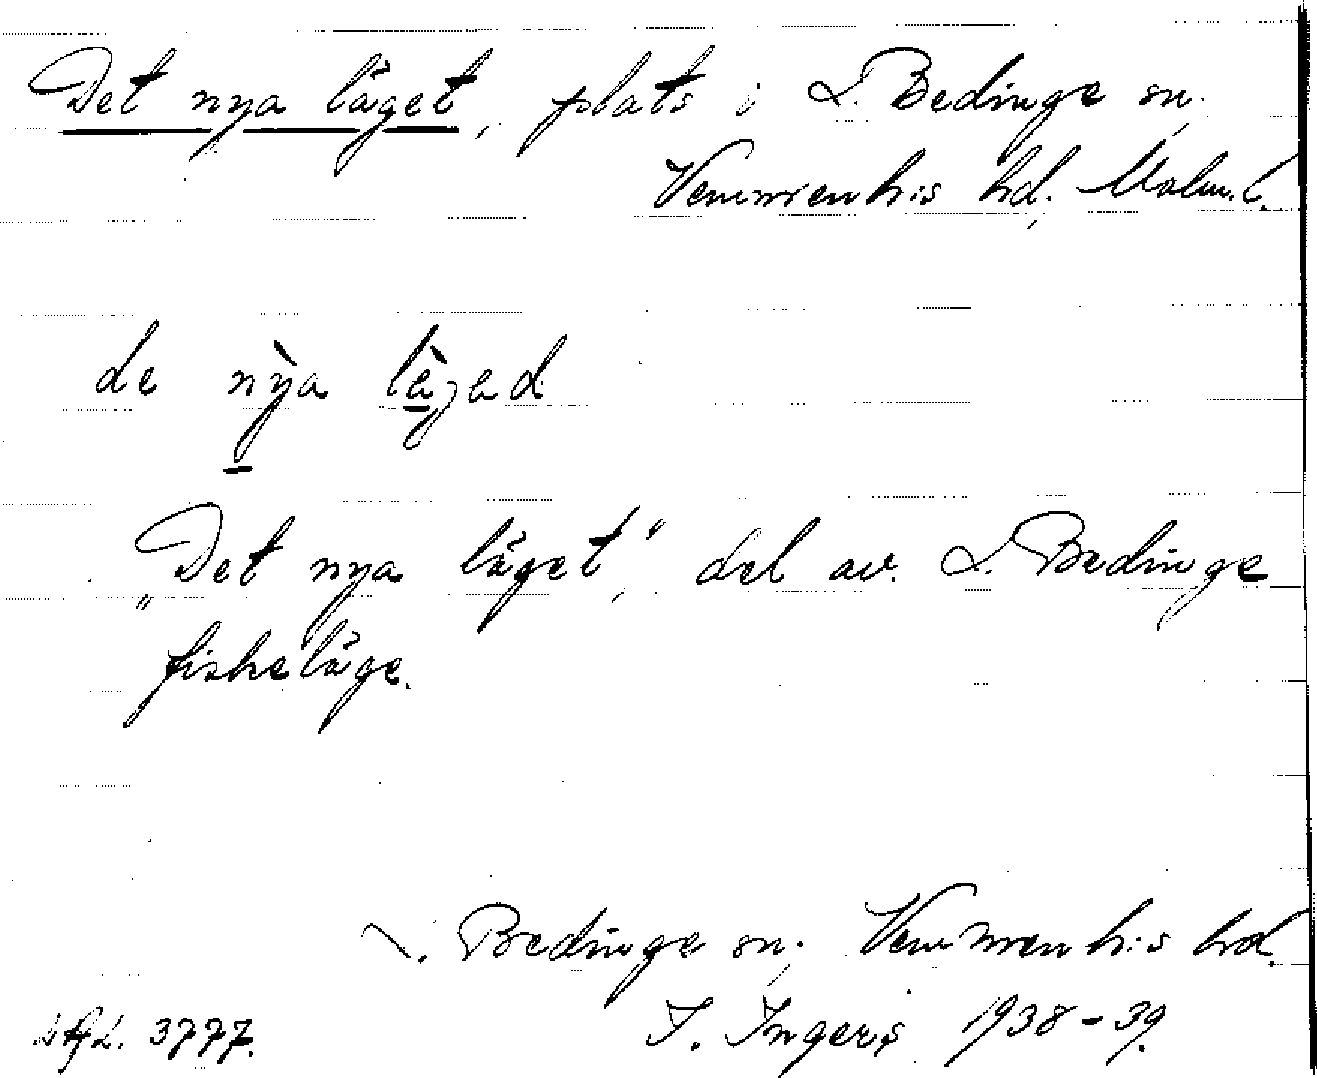 Det nya läget, plats i L. Bedinge sn.
Vemmenhs hd. Malm. l.
de nỳa lèjed
"Det nya läget", del av L. Bedinge
fiskeläge.
L. Bedinge sn, Vemmenhs hd.
I. Ingers 1938-39.
3777.